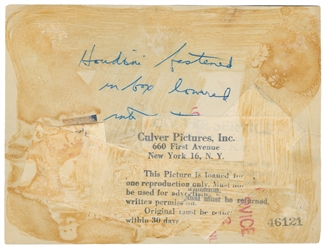 Houdini fastened
in box lowered
into
Culver Pictures, Inc.
660 First Avenue
New York 16, N. Y.
This Picture is loaned for
one reproduction only. Must not
be used for advertising
written permission. must be returned
Original must be
within 30 days
46121